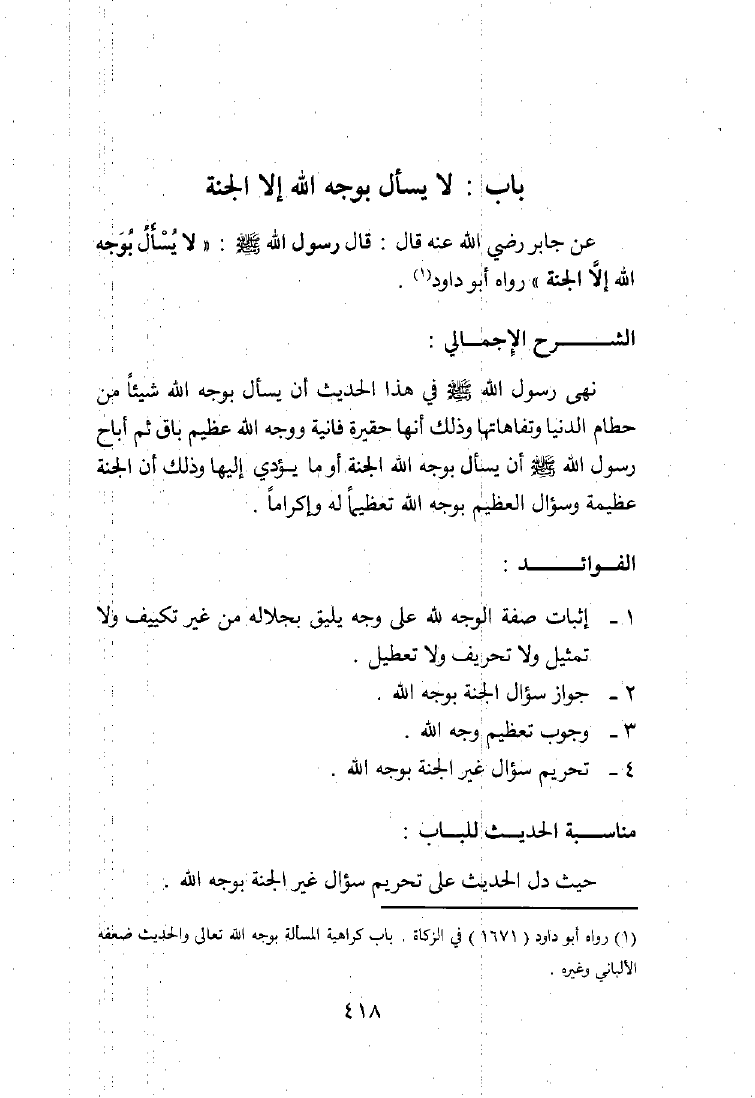 باب : لا يسأل بوجه الله إلا الجنة
عن جابر رضي الله عنه قال : قال رسول الله ﷺ : « لا يُسْأَلُ بُوَجه
الله إلَّا الجنة » رواه أبو داود(١) .
الشـــــرح الإجمـــالي :
نهى رسول الله ﷺ في هذا الحديث أن يسأل بوجه الله شيئاً من
حطام الدنيا وتفاهاتها وذلك أنها حقيرة فانية ووجه الله عظيم باق ثم أباح
رسول الله ﷺ أن يسأل بوجه الله الجنة أو ما يـؤدي إليها وذلك أن الجنة
عظيمة وسؤال العظيم بوجه الله تعظيماً له وإكراماً .
الفـوائـــــــد :
١ ـ إثبات صفة الوجه لله على وجه يليق بجلاله من غير تكييف ولا
تمثيل ولا تحريف ولا تعطيل .
٢ ـ جواز سؤال الجنة بوجه الله .
٣ ـ وجوب تعظيم وجه الله .
٤ ـ تحريم سؤال غير الجنة بوجه الله .
مناســـبة الحديـــث للبـــاب :
حيث دل الحديث على تحريم سؤال غير الجنة بوجه الله .
(١) رواه أبو داود ( ١٦٧١ ) في الزكاة . باب كراهية المسألة بوجه الله تعالى والحديث ضعفه
الألباني وغيره .
٤١٨